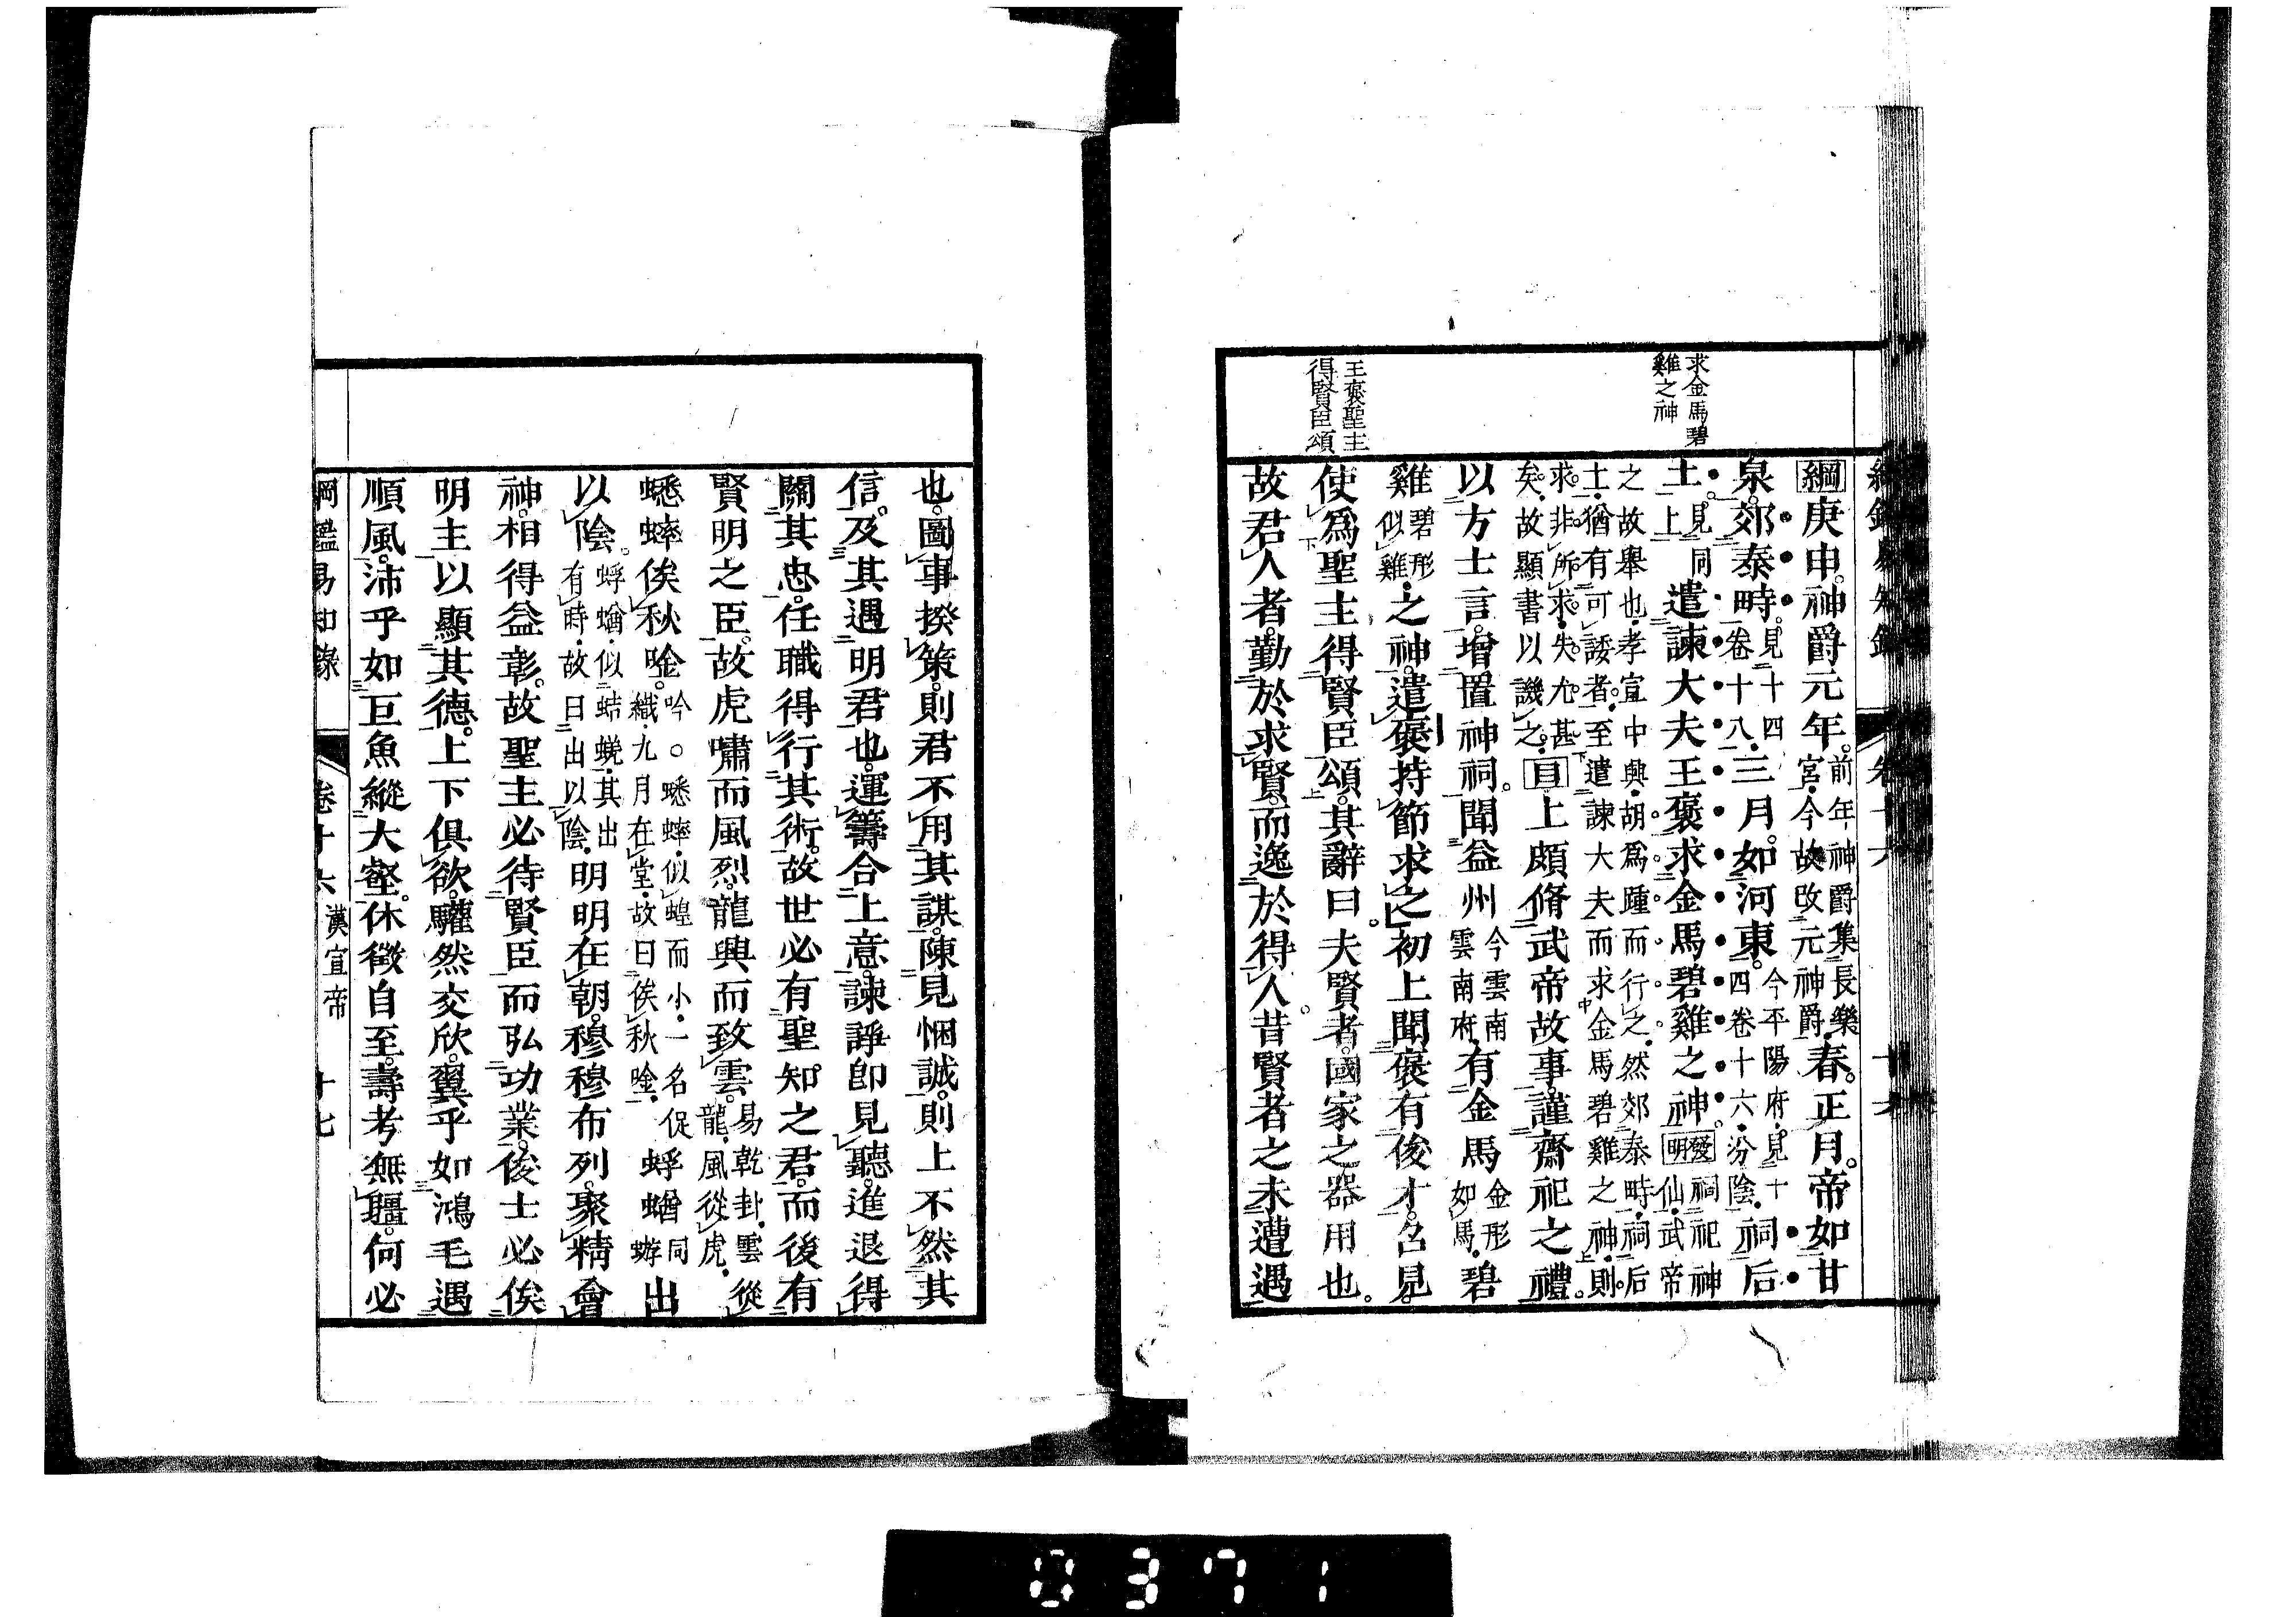 求金馬碧
雞之神
王褒聖主
得賢臣頌
綱庚申。神爵元年。前年神爵集長樂宮。今故改元神爵。春。正月。帝如甘
泉。郊泰畤。見十四卷十八。三月。如河東。今平陽府。見十四卷十六。汾陰。祠后
土。見同上 遣諫大夫王褒求金馬碧雞之神。發明祠祀神仙。武帝
之故舉也。孝宣中興。胡爲踵而行之。然郊泰畤。祠后
土。猶有可諉者。至遣諫大夫而求金馬碧雞之神。則
求非所求。失尤甚
矣。故顯書以譏之。目上頗脩武帝故事。謹齋祀之禮。
以方士言。增置神祠。聞益州今雲南雲南府。有金馬金形如馬。碧
雞碧形似雞。之神。遣褒持節求之。初上聞褒有俊才。召見。
使爲聖主得賢臣頌。其辭曰。夫賢者。國家之器用也。
故君人者。勤於求賢。而逸於得人。昔賢者之未遭遇
也。圖事揆策。則君不用其謀。陳見悃誠。則上不然其
信。及其遇明君也。運籌合上意。諫諍即見聽。進退得
關其忠。任職得行其術。故世必有聖知之君。而後有
賢明之臣。故虎嘯而風烈。龍興而致雲。易乾卦。雲從龍。風從虎。
蟋蟀俟秋唫。吟。○蟋蟀。似蝗而小。一名促織。九月在堂。故曰俟秋唫。蜉蝣同蝣出
以陰。蜉蝣。似蛣蜣。其出有時。故曰出以陰。明明在朝。穆穆布列。聚精會
神。相得益彰。故聖主必待賢臣而弘功業。俊士必俟
明主以顯其德。上下俱欲。驩然交欣。翼乎如鴻毛遇
順風。沛乎如巨魚縱大壑。休徵自至。壽考無疆。何必
綱鑑易知錄 卷十六 漢宣帝 十七
0371